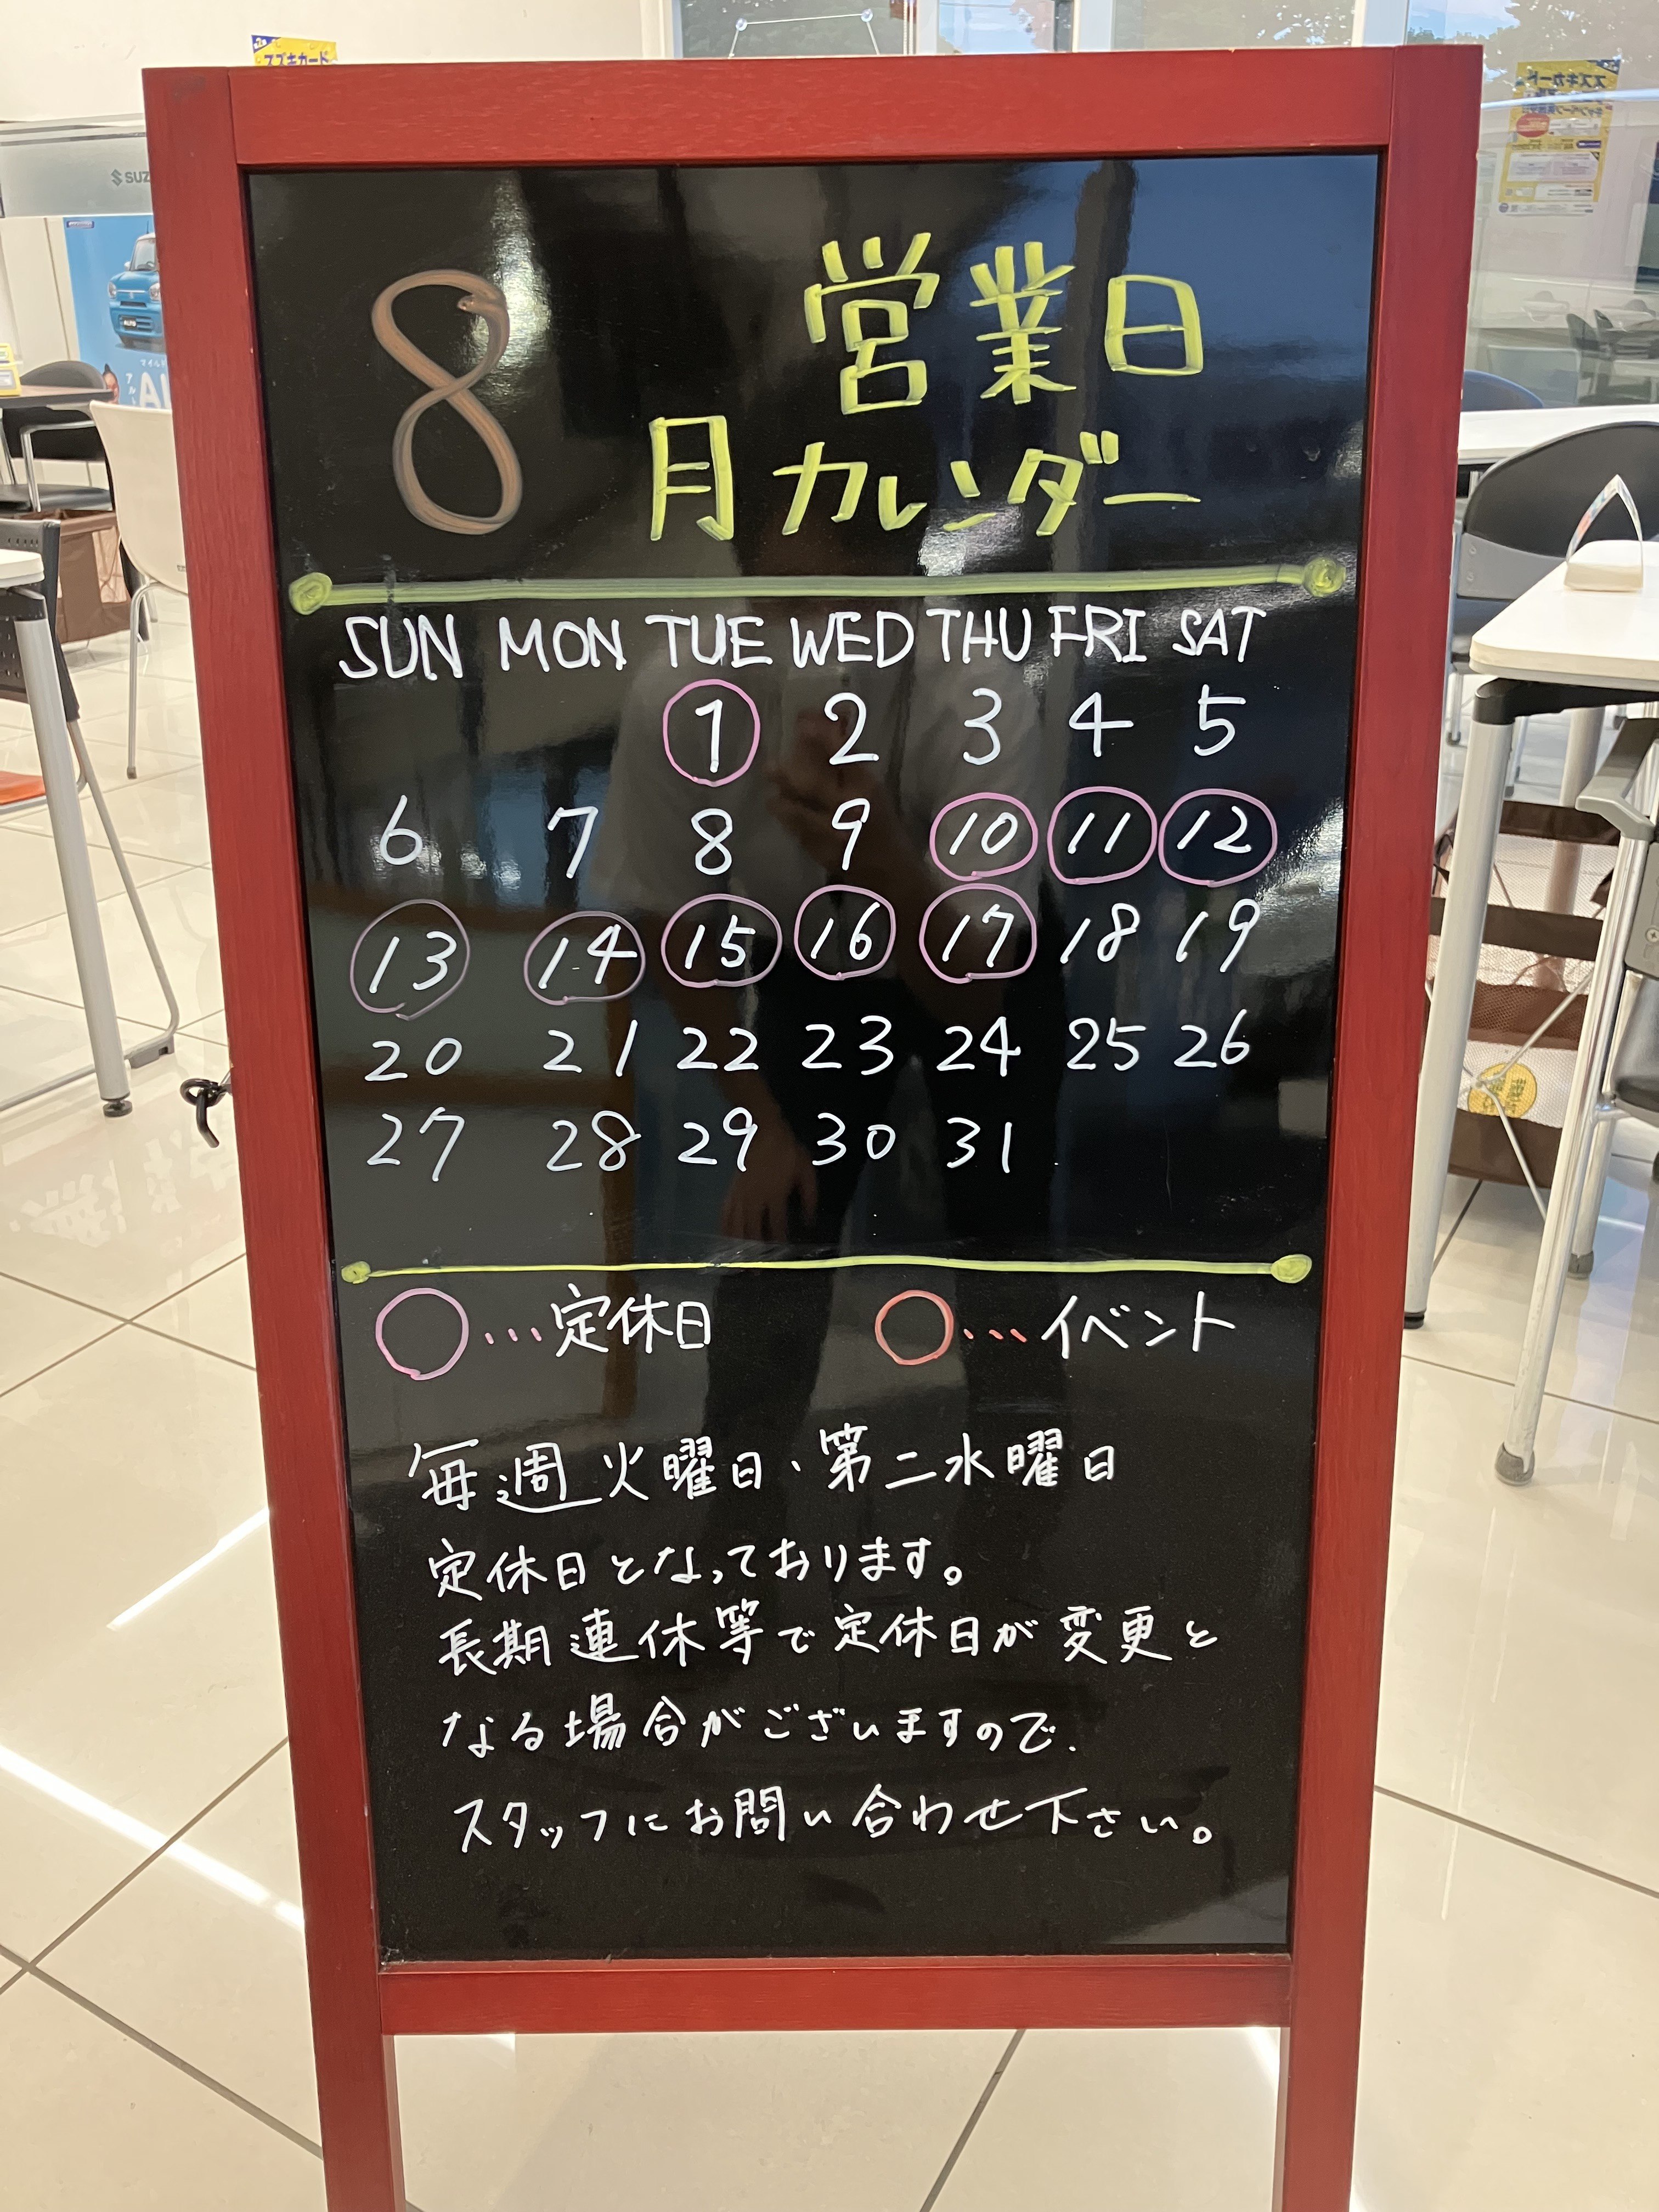 スズキカード
SUZ
営業日
8月カレンダー
SUN MON TUE WED THU FRI SAT
1 2 3 4 5
6 7 8 9 10 11 12
13 14 15 16 17 18 19
20 21 22 23 24 25 26
27 28 29 30 31
○…定休日 ○…イベント
毎週火曜日、第二水曜日
定休日となっております。
長期連休等で定休日が変更と
なる場合がございますので、
スタッフにお問い合わせ下さい。